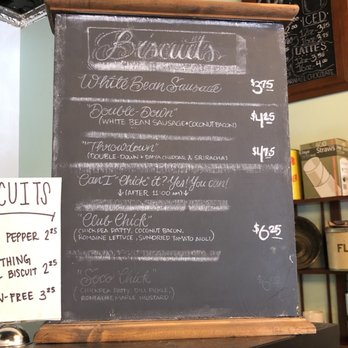 Biscuits
White Bean Sausage $3.75
"Double-Down" $4.25
(WHITE BEAN SAUSAGE + COCONUT BACON)
"Throwdown" $4.75
(DOUBLE DOWN + DAIYA CHEDDAR & SRIRACHA)
Can I "Chick" it? Yes! You can!
↓ (AFTER 11:00 am) ↓
"Club Chick" $6.25
(CHICKPEA PATTY, COCONUT BACON,
ROMAINE LETTUCE, SUNDRIED TOMATO AIOLI)
"Soco Chick"
(CHICKPEA PATTY, DILL PICKLE,
MAPLE MUSTARD)
CUITS
PEPPER 2.25
THING
BISCUIT 2.25
N-FREE 3.25
ICED
LATTES